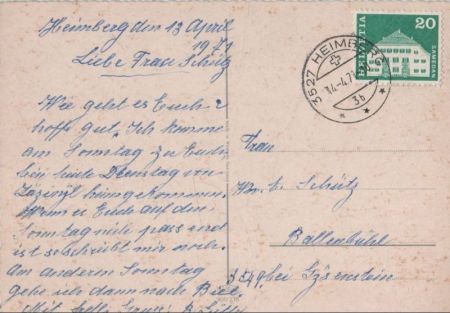 Heimberg den 13 April
1971
Liebe Frau Schütz
Wie geht es Euch
hoffe gut. Ich komme
am Sonntag zu Euch
bin heute Dienstag von
Zäziwil heimgekommen.
Wenn es Euch auf den
Sonntag nich passend
ist so schreibt mir noch.
Am anderen Sonntag
gehe ich dann nach Biel.
HELVETIA
20
3527 HEIMBERG
3b
Frau
Schütz
Ballenbühl
3549 bei